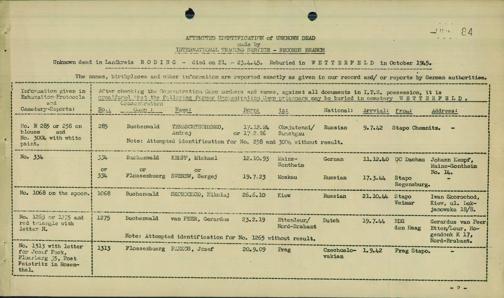 84
ATTEMPTED IDENTIFICATION of UNKNOWN DEAD
made by
INTERNATIONAL TRACING SERVICE - RECORDS BRANCH
Unknown dead in Landkreis RODING - died on 21. - 23.4.45. Reburied in WETTERFELD in October 1945.
The names, birthplaces and other information are reported exactly as given in our record and/ or reports by German authorities.
Information given in Exhumation-Protocols and Cemetery-Reports:
After checking the Concentration Camp numbers and names, against all documents in I.T.S. possession, it is
considered that the following former Concentration Camp prisoners may be buried in cemetery WETTERFELD.
No.: Camp: Name: Born: in: National: Arrival: from: Address:
No. R 285 or 258 on blouse and No. 3004 with white paint.
285 Buchenwald Andrej 17.12.24 or 17.2.26 Russian 9.7.42 Stapo Chemnitz. -
Note: Attempted identification for No. 258 and 3004 without result.
No. 334
334 Buchenwald Michael 12.10.93 Mainz- German 11.12.40 CC Dachau Johann Kempf, Mainz- No. 14.
or or or
334 Flossenburg Sergej 19.7.23 Moskau Russian 17.3.44 Stapo Regensburg. -
No. 1068 on the spoon.
1068 Buchenwald Nikolaj 26.6.10 Kiew Russian 21.10.44 Stapo Weimar Iwan Kiew, ul.
No. 1269 or 1275 and red triangle with letter H.
1275 Buchenwald van PEER, Gerardus 23.2.19 Etten/Leur/ Nord-Brabant Dutch 19.7.44 BDS den Haag Gerardus van Peer Etten/Leur, K 17, Nord-Brabant.
Note: Attempted identification for No. 1269 without result.
No. 1313 with letter for Josef Fuck, 35, Post Feistritz in Rosenthal.
1313 Flossenburg Josef 20.9.09 Prag Czechoslovakian 1.9.42 Prag Stapo. -
- 2 -